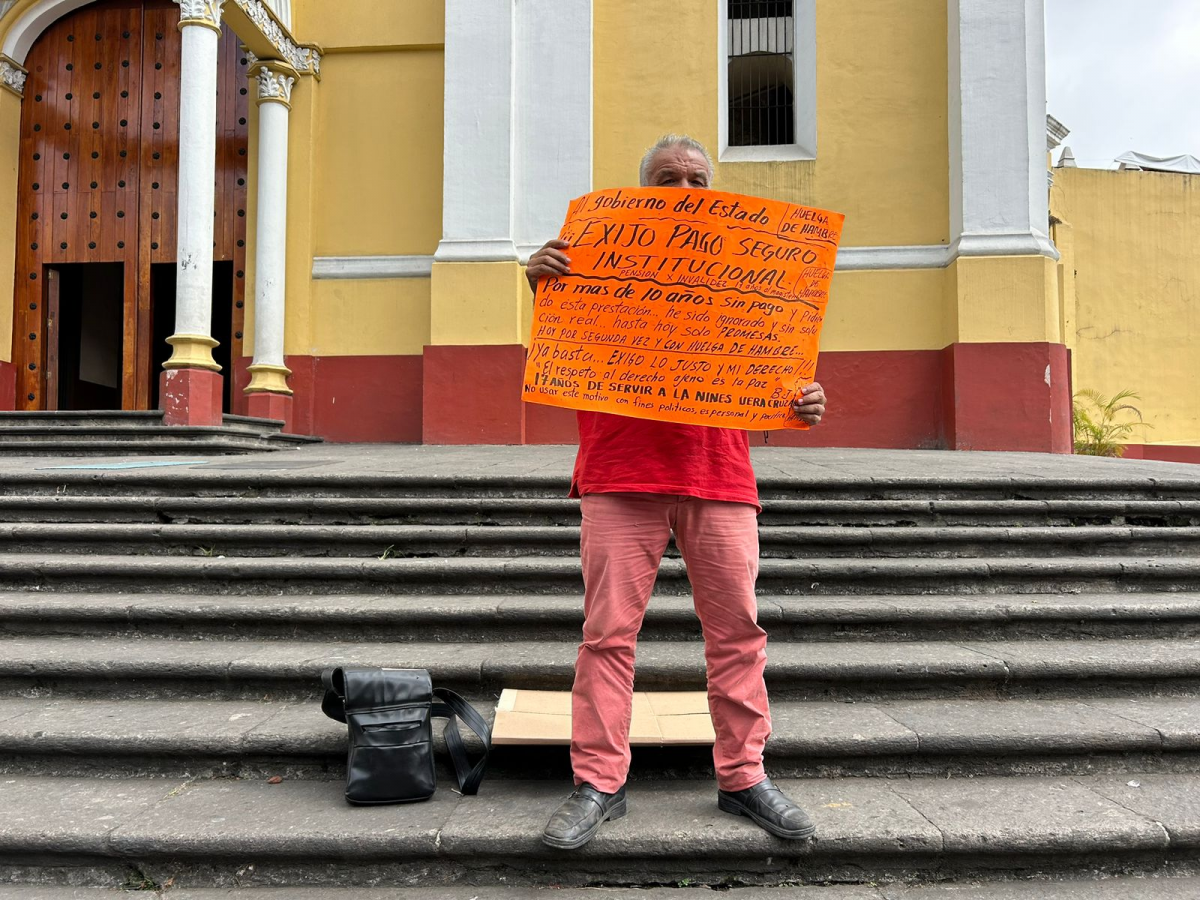 Al gobierno del Estado
HUELGA
DE HAMBRE
¡¡¡EXIJO PAGO SEGURO
INSTITUCIONAL.
PENSION X INVALIDEZ
HUELGA
DE
HAMBRE
Por mas de 10 años sin pago y Pidien
do esta prestación... he sido ignorado y sin solu
ción real... hasta hoy solo PROMESAS.
HOY POR SEGUNDA VEZ Y CON HUELGA DE HAMBRE...
¡Ya basta... EXIGO LO JUSTO Y MI DERECHO!!!
"El respeto al derecho ajeno es la Paz" B.J.
17 AÑOS DE SERVIR A LA NIÑES VERACRUZANA
No usar este motivo con fines politicos, es personal y pacifica